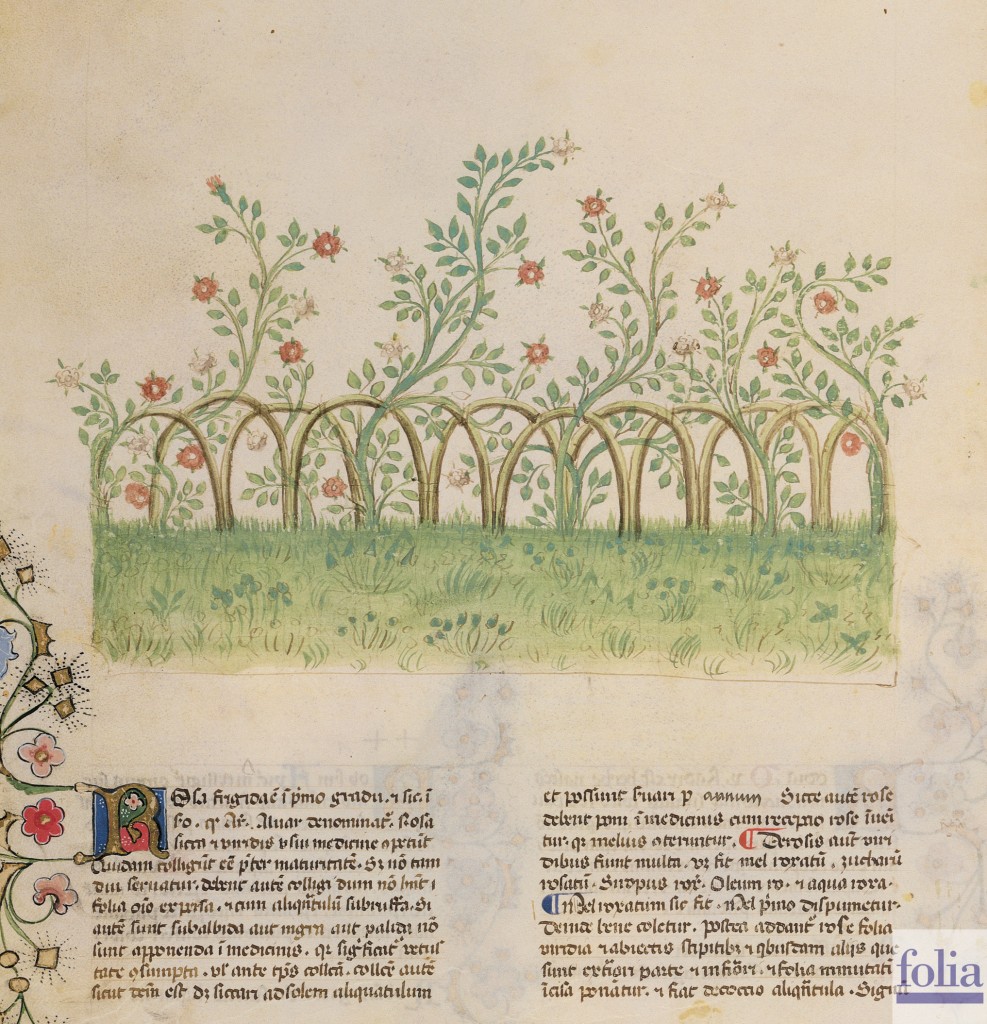 Rosa frigida ē ī pͥmo gradu. ⁊ sic. ī
ſo. qͥ Ar. Aluar denominatͬ. Rosa
sicca ⁊ viridis vsui medicine cōpetit
Quidam colligūt eē p̄ter maturitatē. Sꝫ nō tam
diu seruātur. debent autē colligi dum nō hn̄t
folia oīo exp̄sa. ⁊ cum aliqn̄tulū subruffa. Si
autē sunt subalbida aut nigra aut palida nō
sunt apponenda ī medicinis. qꝛ sigͥficatͬ
vl' ante tp̄s collcā. collcē autē
sicut dcm̄ est dn̄t siccari ad solem aliquatulum
et possunt ẜuari ꝑ annum Sicce autē rose
debent poni ī medicinis cum recepcio rose īueī
tur. qꝛ melius ɔteruntur. ¶ De rosis aūt viri
dibus fiunt multa. vꝫ fit mel roxatū. zucharū
rosatū. Siropus roẜ. Oleum ro. ⁊ aqua roxa.
¶ Mel roxatum sic fit. Mel pͥmo dispumetur.
Deinde bene coletur. postea addantͬ rose folia
viridia ⁊ abiectis stipitibꝫ ⁊ qͥbusdam aliis que
sunt ī parte ⁊ folia minutatī
īcisa ponātur. ⁊ fiat decoccio aliqn̄tula.
folia